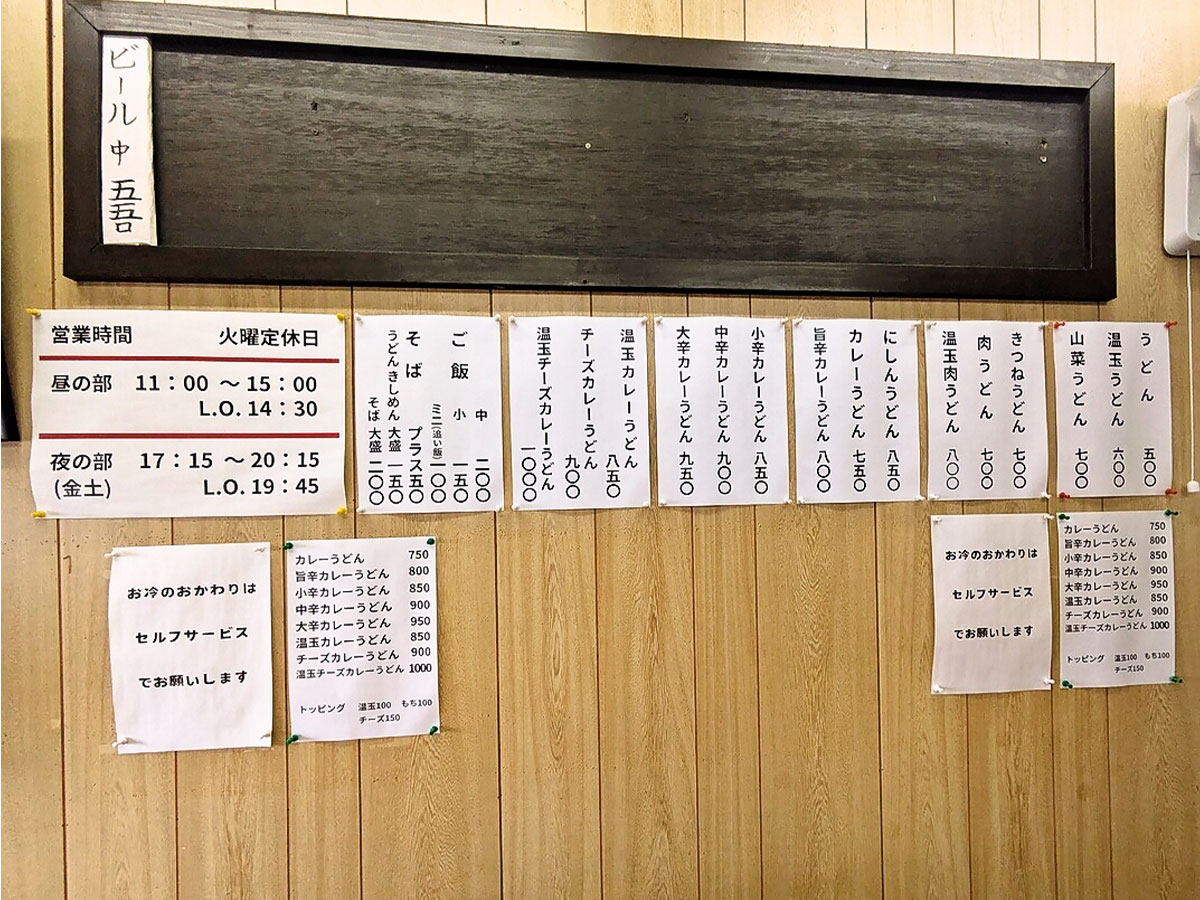 ビール中 五吾
営業時間 火曜定休日
昼の部 11：00 ～15：00
L.O. 14：30
夜の部 17：15 ～20：15
(金土) L.O. 19：45
うどん 五〇〇
温玉うどん 六〇〇
山菜うどん 七〇〇
きつねうどん 七〇〇
肉うどん 七〇〇
温玉肉うどん 八〇〇
にしんうどん 八五〇
カレーうどん 七五〇
旨辛カレーうどん 八〇〇
小辛カレーうどん 八五〇
中辛カレーうどん 九〇〇
大辛カレーうどん 九五〇
温玉カレーうどん 八五〇
チーズカレーうどん 九〇〇
温玉チーズカレーうどん 一〇〇〇
ご飯 中 二〇〇
小 一五〇
ミニ(追い飯) 一〇〇
そば プラス五〇
うどんきしめん 大盛 一五〇
そば 大盛 二〇〇
お冷のおかわりは
セルフサービス
でお願いします
カレーうどん 750
旨辛カレーうどん 800
小辛カレーうどん 850
中辛カレーうどん 900
大辛カレーうどん 950
温玉カレーうどん 850
チーズカレーうどん 900
温玉チーズカレーうどん 1000
トッピング 温玉100 もち100
チーズ150
お冷のおかわりは
セルフサービス
でお願いします
カレーうどん 750
旨辛カレーうどん 800
小辛カレーうどん 850
中辛カレーうどん 900
大辛カレーうどん 950
温玉カレーうどん 850
チーズカレーうどん 900
温玉チーズカレーうどん 1000
トッピング 温玉100 もち100
チーズ150